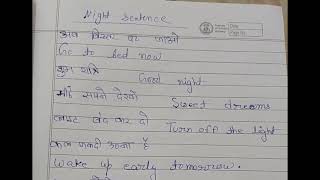 Night Sentence
अब बिस्तर पर जाओ
Go to bed now
शुभ रात्रि Good night
मीठे सपने देखो Sweet dreams
लाइट बंद कर दो Turn off the light
कल जल्दी उठना है
Wake up early tomorrow.